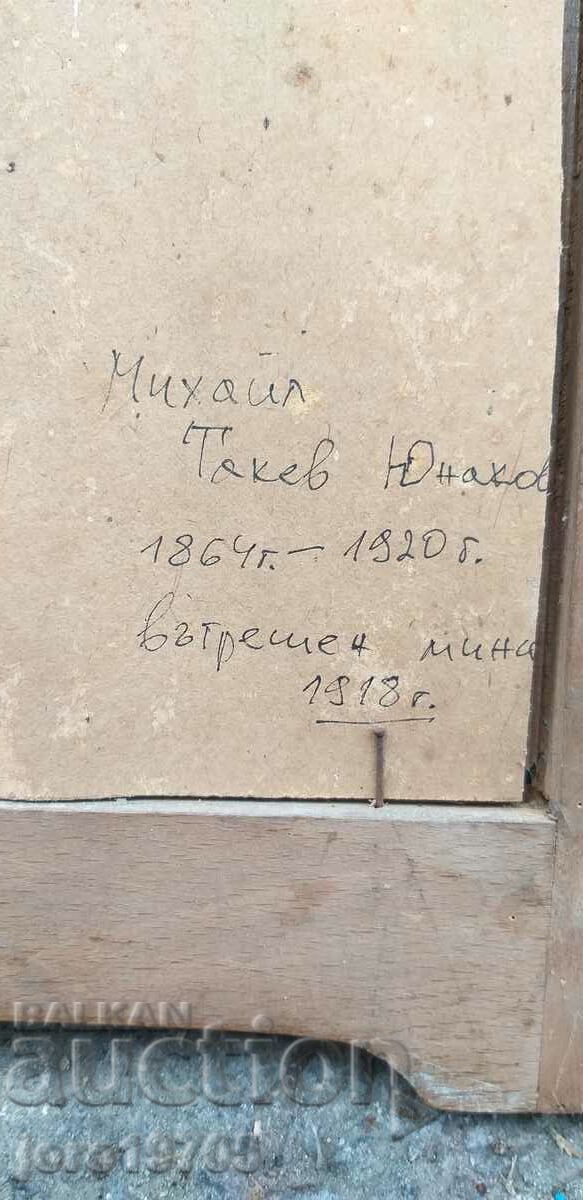 Михайл
Такев Юнаков
1864г. – 1920г.
вътрешен мина
1918г.
BALKAN
auction
joro19705